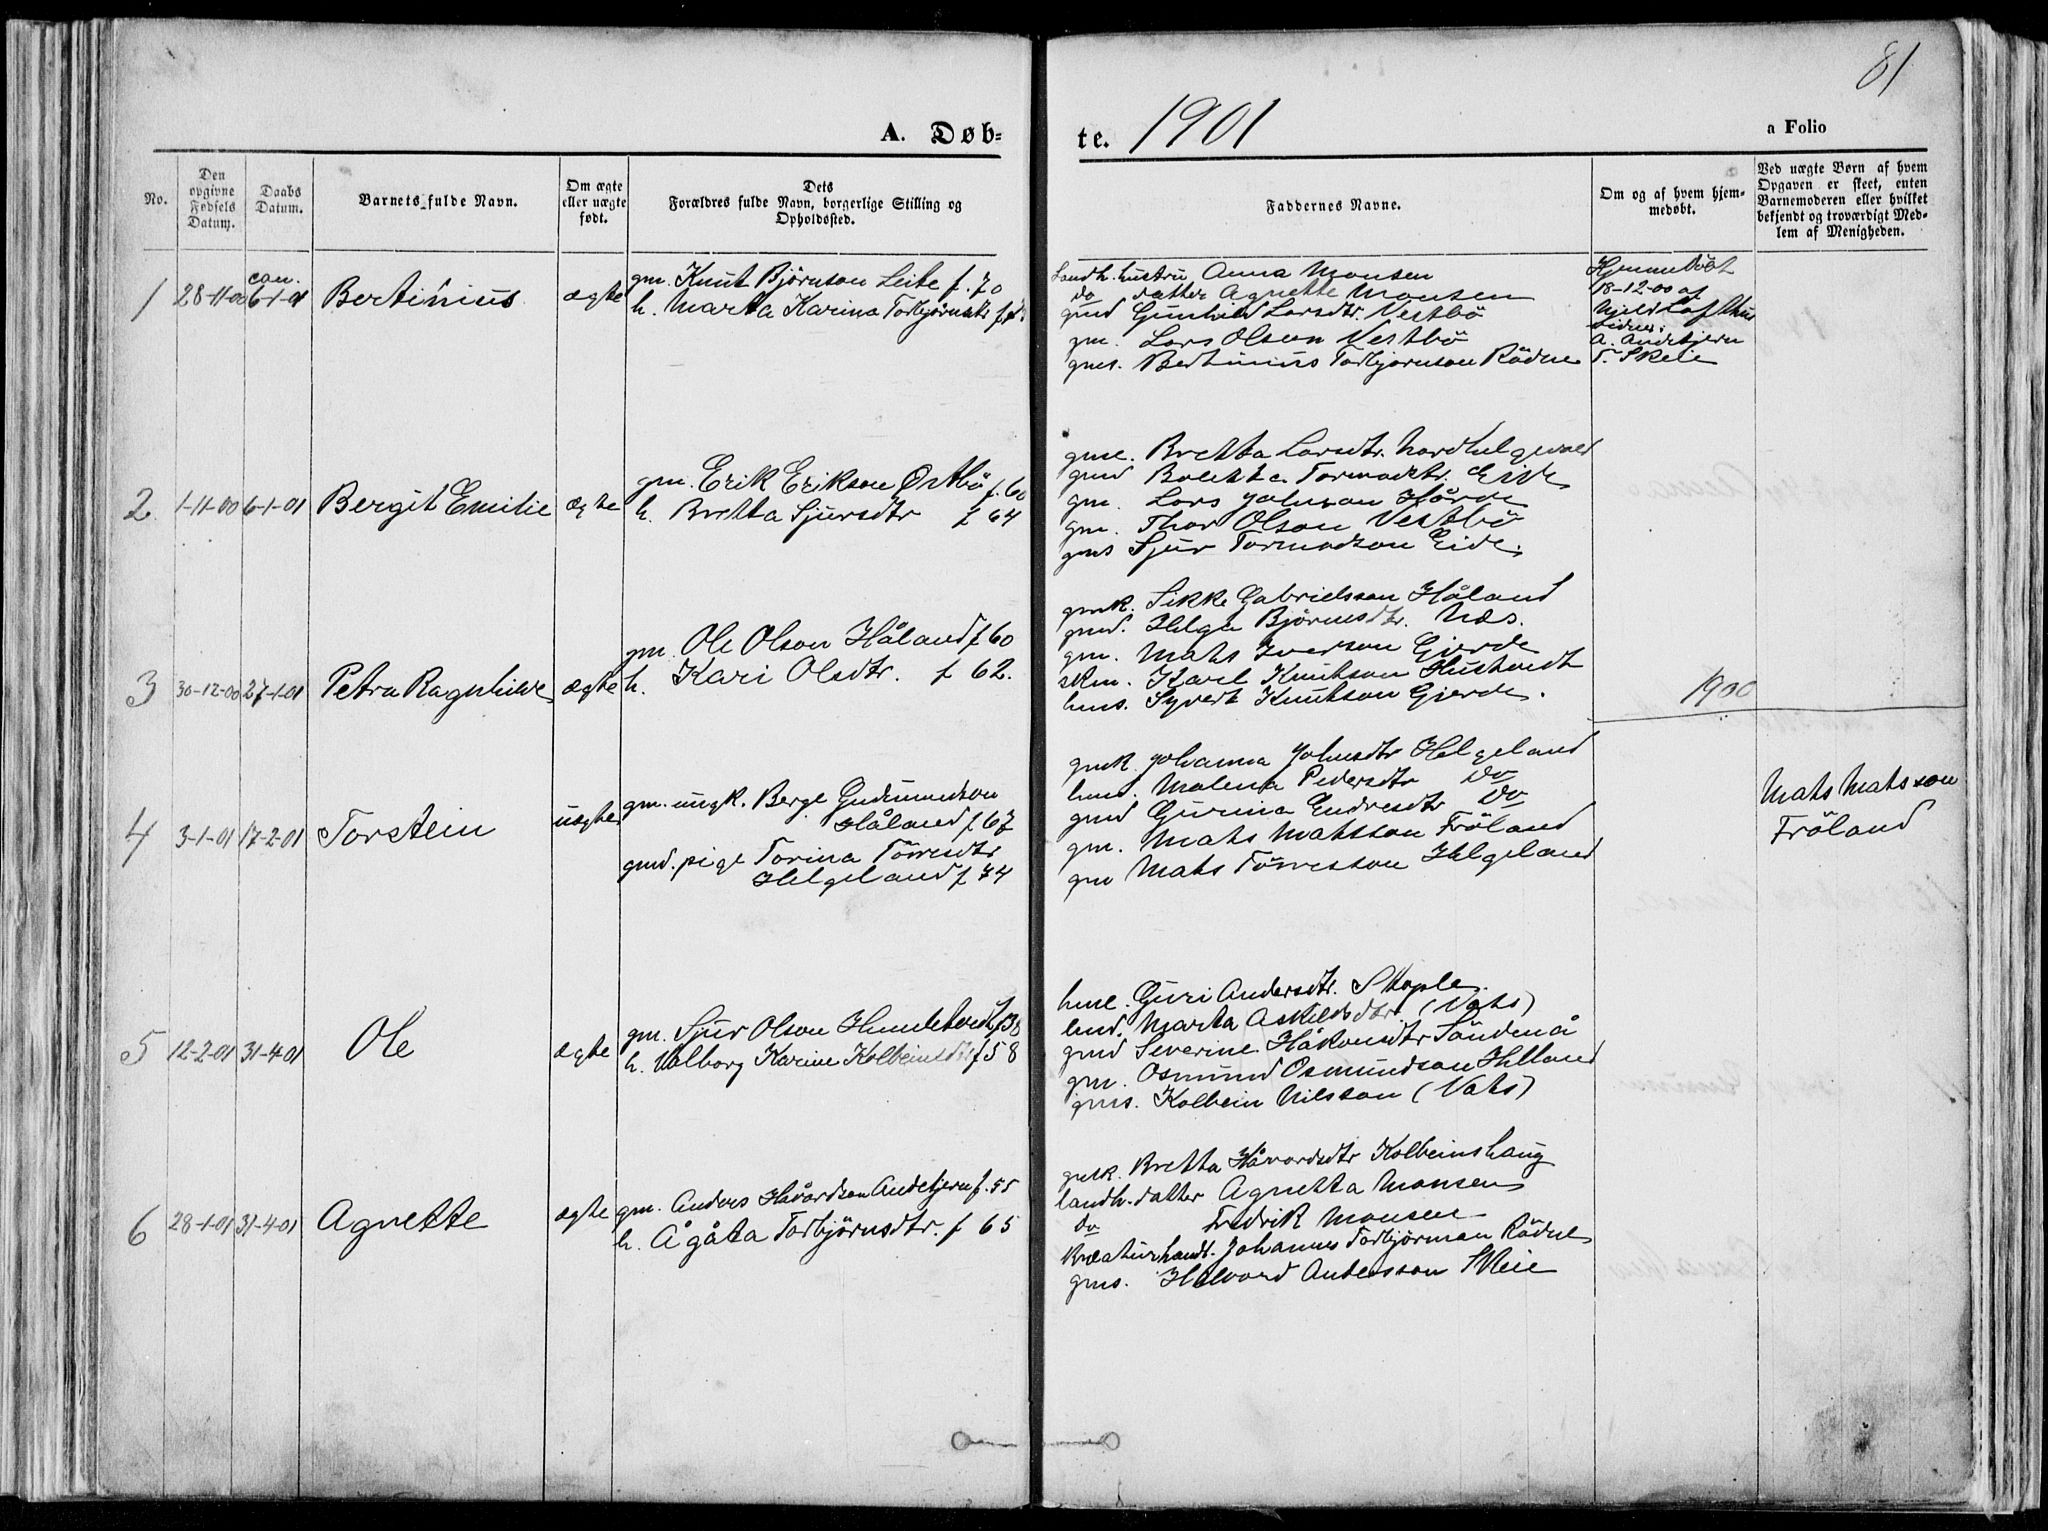 81
A. Døb=
te. 1901
a Folio
No.
Den opgivne Fødsels Datum.
Daabs Datum.
Barnets fulde Navn.
Om ægte eller uægte født.
Dets
Forældres fulde Navn, borgerlige Stilling og
Opholdssted.
Faddernes Navne.
Om og af hvem hjem-
medøbt.
Ved uægte Børn af hvem
Opgaven er skeet, enten
Barnemoderen eller hvilket
bekjendt og troværdigt Med-
lem af Menigheden.
1 28-11-00 6-1-01 Bertinius ægte
gm. Knut Björnson Leite f. 70
h. Marta Karina Torbjörnsdtr
Landh. hustru Anna Monsen
do datter Agnette Monsen
gmd Gunhild Larsdtr. Vestbö
gm. Lars Olson Vestbö
gms. Bertinius Torbjörnson Rödne
Hjemmedöbt
18-12-00 af
Njeld Lofthus
Vidner:
A. Andebjern
T. Skeie
2 1-11-00 6-1-01 Bergit Emilie ægte
gm. Erik Erikson Östbö f. 60
h. Bretta Sjursdtr f 64
gme. Bretta Larsdtr.
gmd Boletta Tormodsdtr. Eide
gm. Lars Johnson Hårde
gm. Thor Olson Vestbö
gms Sjur Tormodson Eide.
3 30-12-00 27-1-01 Petra Ragnhilde ægte
gm. Ole Olson Håland f 60
h. Kari Olsdtr. f 62.
gmk. Sikke Gabrielsson Håland
gmd. Helga Björnsdtr. Næs.
gm. Mats Iverson Gjerde
skm. Karl Knutson Hustvedt
hms. Syvert Knutson Gjerde.
1900
4 3-1-01 17-2-01 Torstein uægte
gm. ungk. Berge Gudmundson
Håland f 67
gmd. pige Torina Törresdtr
Helgeland f 74
gmk. Johanna Johnsdtr Helgeland
hmd. Malena Pedersdtr Do
gmd Gurina Endresdtr Do
gm. Mats Matsson Fröland
gm Mats Törresson Helgeland
Mats Matsson
Fröland
5 12-2-01 31-4-01 Ole ægte
gm. Sjur Olson Hundetvedt f 38
h. Valborg Karine Kolbeinsdtr f 58
hme. Guri Andersdtr. Stople
lmd. Marta Askildsdtr (Vats)
gmd Severine Håkonsdtr Söndenå
gm. Osmund Osmundson Helland
gms. Kolbein Nilsson (Vats)
6 28-1-01 31-4-01 Agnette ægte
gm. Anders Håvordson Andebjern f. 55
h. Ågåta Torbjörnsdtr. f 65
gmk. Bretta Håvordsdtr Kolbeinshaug
landh. datter Agnetta Monsen
do Fredrik Monsen
Kreaturhandl. Johannes Torbjörnson Rödne
gms. Håvord Andersson Skeie